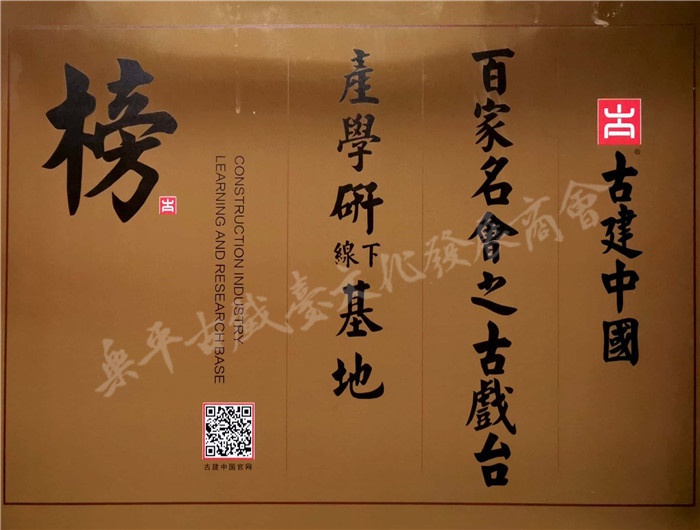 古建中國
百家名會之古戲台
產學研
線下
基地
CONSTRUCTION INDUSTRY
LEARNING AND RESEARCH BASE
榜
古建中国官网
樂平古戲臺文化發展商會